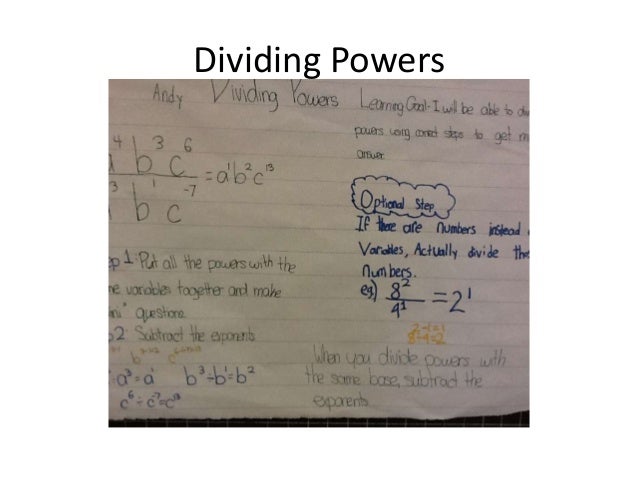 Dividing Powers
Andy Dividing Powers
Learning Goal-I will be able to
powers using correct steps to get
answer.
4 b³ c⁶
3 b¹ c⁻⁷
= a¹b²c¹³
Optional Step
If there are numbers instead
Variables, Actually divide
numbers.
eg) 8²/4¹ = 2¹
2-1=1
p 1: Put all the powers with the
variables together and make
" questions
2: Subtract the exponents
÷a³=a¹ b³÷b¹=b²
c⁶÷c⁻⁷=c¹³
When you divide powers with
the same base, subtract the
exponents